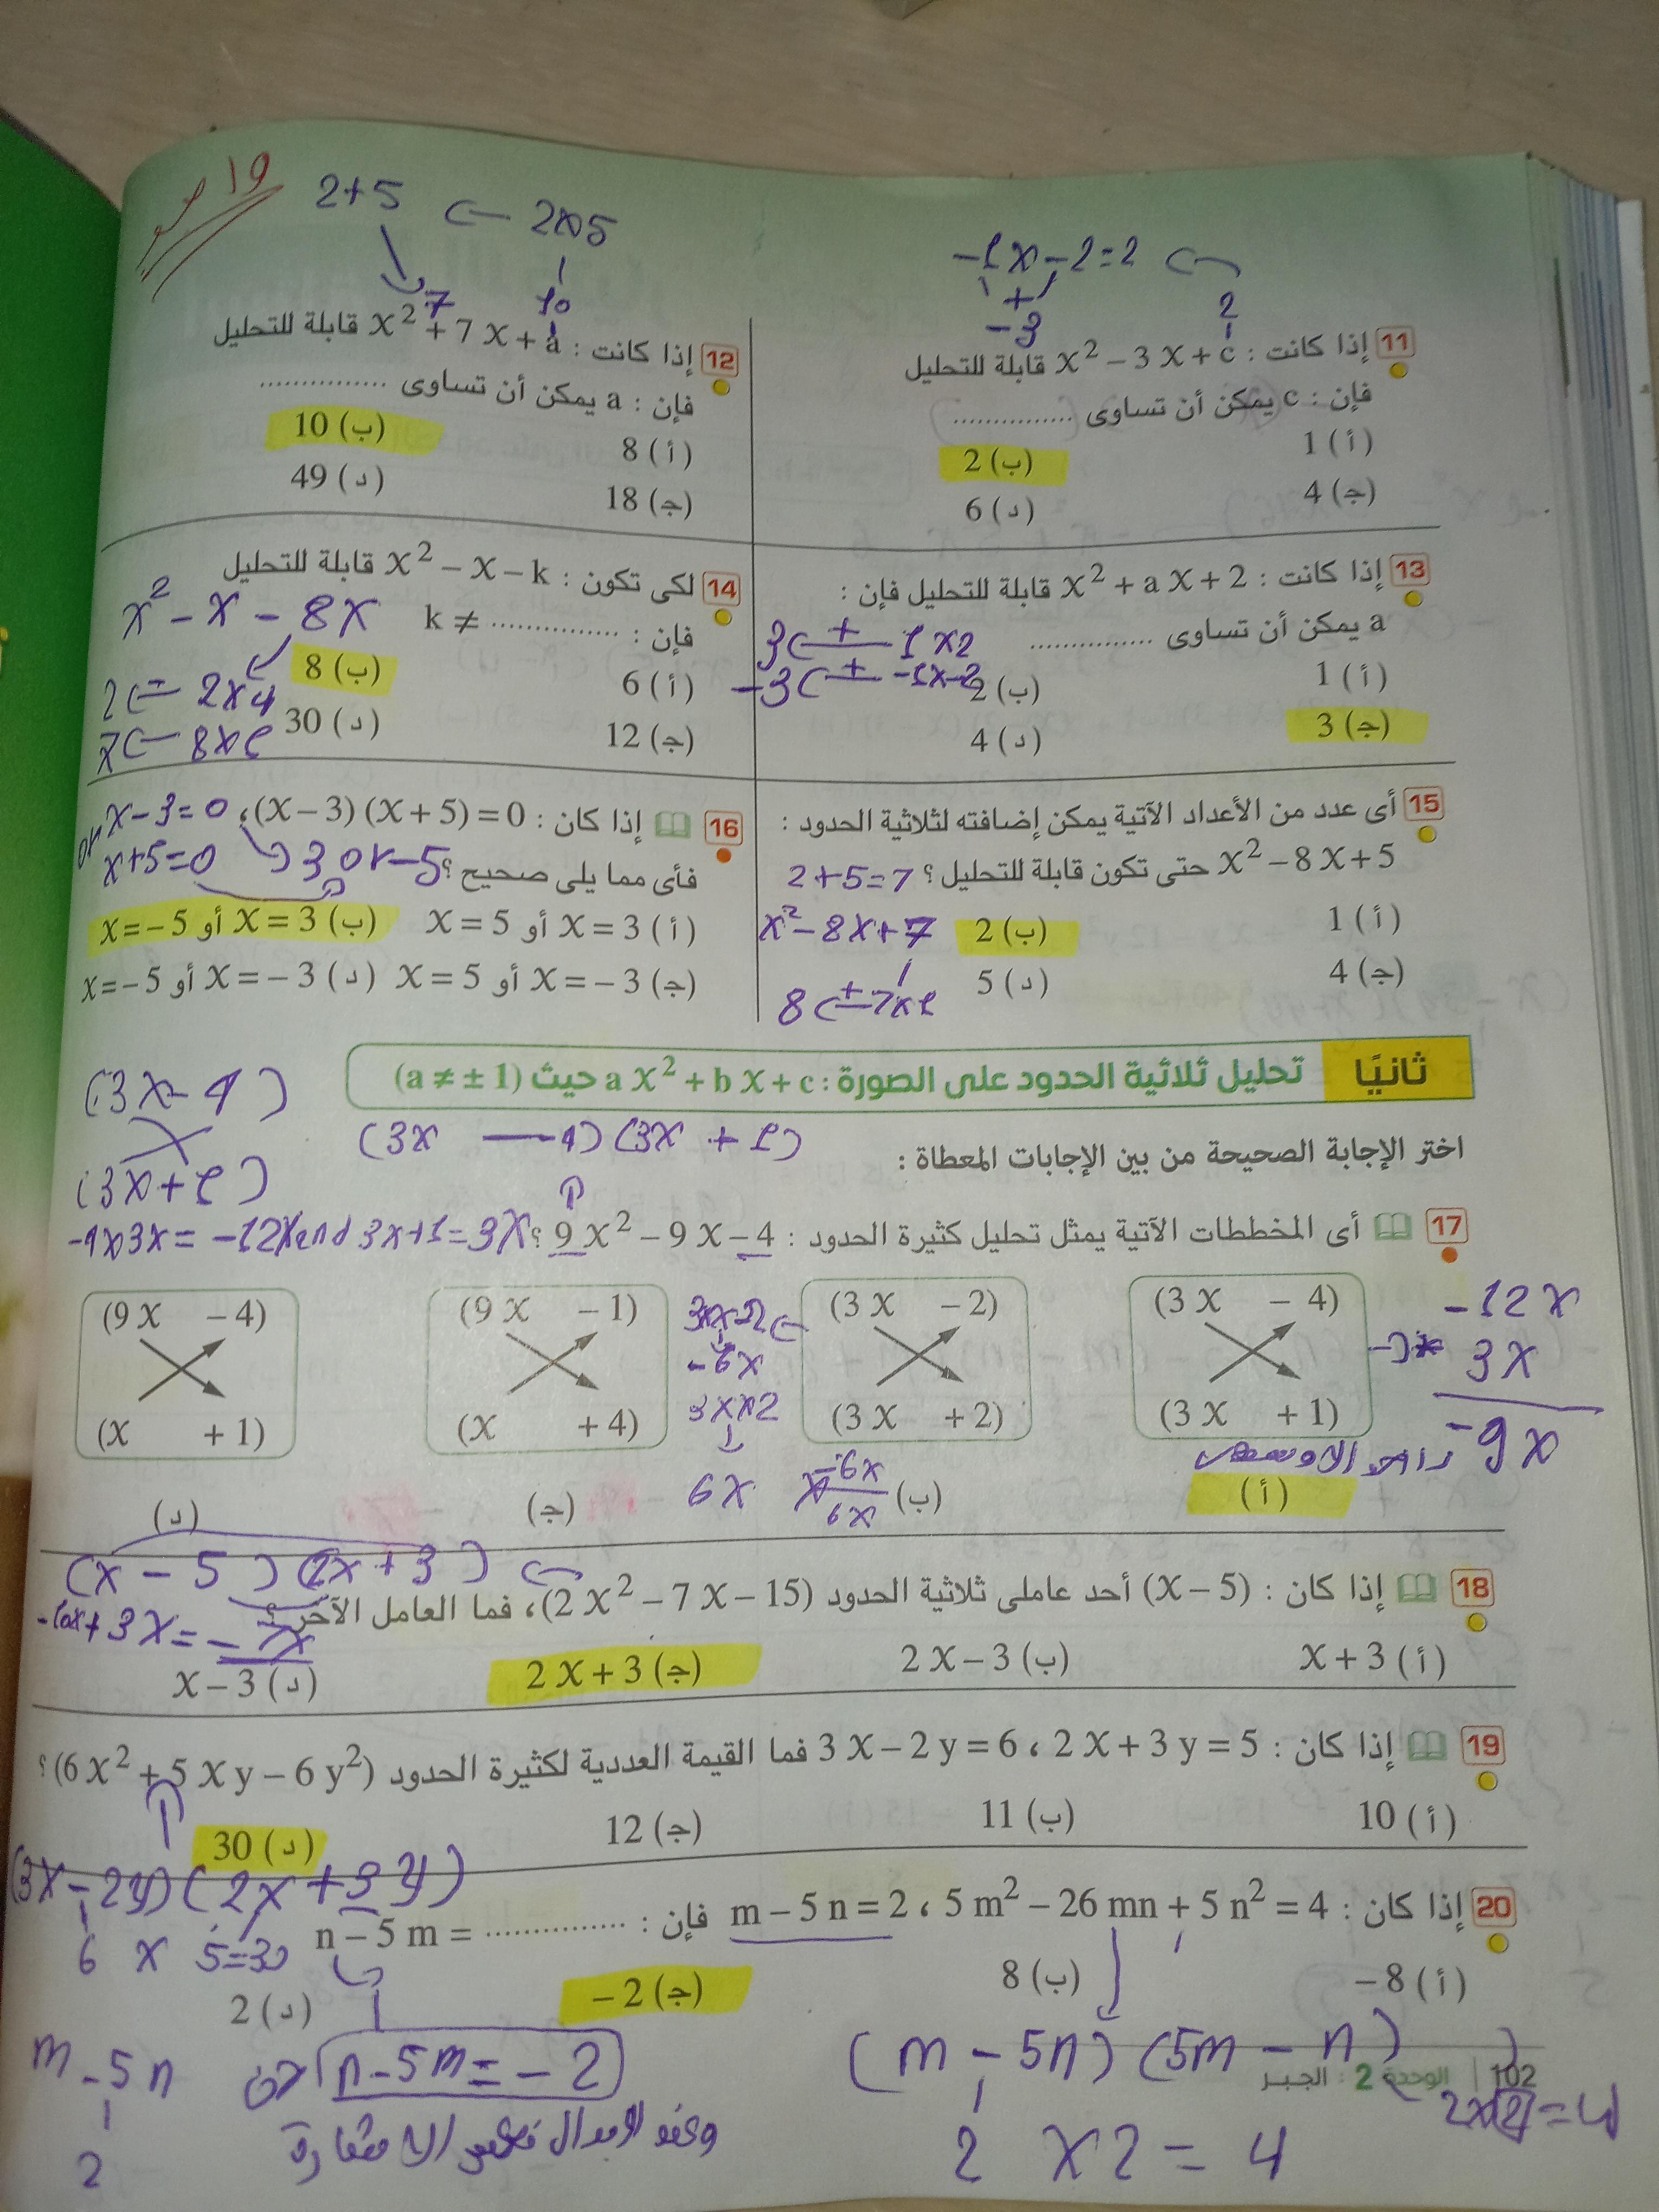 19
2+5 ← 2×5
7
10
-1×-2=2
+
-3
2
11 إذا كانت : x² – 3x + c قابلة للتحليل
فإن : c يمكن أن تساوى ...............
(أ) 1
(ب) 2
(ج) 4
(د) 6
12 إذا كانت : x² + 7x + a قابلة للتحليل
فإن : a يمكن أن تساوى ...............
(أ) 8
(ب) 10
(ج) 18
(د) 49
13 إذا كانت : x² + a x + 2 قابلة للتحليل فإن :
a يمكن أن تساوى ...............
3 ← + 1×2
-3 ← + -1×-2
(أ) 1
(ب) 2
(ج) 3
(د) 4
14 لكى تكون : x² – x – k قابلة للتحليل
فإن : k ≠ ...............
x² - x - 8x
2 ← 2×4
7 ← 8×1
(أ) 6
(ب) 8
(ج) 12
(د) 30
15 أى عدد من الأعداد الآتية يمكن إضافته لثلاثية الحدود :
x² – 8x + 5 حتى تكون قابلة للتحليل ؟
2+5=7
x² - 8x + 7
8 ← + 7×1
(أ) 1
(ب) 2
(ج) 4
(د) 5
16 إذا كان : (x – 3)(x + 5) = 0 ،
فأى مما يلى صحيح ؟
x-3=0
or x+5=0
3 or -5
(أ) x = 3 أو x = 5
(ب) x = 3 أو x = – 5
(ج) x = – 3 أو x = 5
(د) x = – 3 أو x = – 5
ثانيًا تحليل ثلاثية الحدود على الصورة : a x² + b x + c حيث (a ≠ ± 1)
(3x - 4)
(3x + 1)
(3x - 4)(3x + 1)
اختر الإجابة الصحيحة من بين الإجابات المعطاة :
17 أى المخططات الآتية يمثل تحليل كثيرة الحدود : 9x² – 9x – 4 ؟
-4×3x = -12x and 3x×1=3x
(3x – 4)
(3x + 1)
(أ)
-12x
3x
-9x
الاوسط
(3x – 2)
(3x + 2)
(ب)
3x×-2
-6x
3x×2
6x
-6x
6x
(9x – 1)
(x + 4)
(ج)
(9x – 4)
(x + 1)
(د)
(x - 5)(2x + 3)
18 إذا كان : (x – 5) أحد عاملى ثلاثية الحدود (2x² – 7x – 15)، فما العامل الآخر ؟
-10x + 3x = -7x
(أ) x + 3
(ب) 2x – 3
(ج) 2x + 3
(د) x – 3
19 إذا كان : 2x + 3y = 5 ، 3x – 2y = 6 فما القيمة العددية لكثيرة الحدود (6x² + 5xy – 6y²) ؟
(أ) 10
(ب) 11
(ج) 12
(د) 30
(3x - 2y)(2x + 3y)
6 × 5 = 30
20 إذا كان : m – 5n = 2 ، 5m² – 26mn + 5n² = 4 فإن : n – 5m = ...............
(أ) – 8
(ب) 8
(ج) – 2
(د) 2
(m - 5n)(5m - n)
2×2=4
2 × 2 = 4
m - 5n
2
n - 5m = - 2
102 | الوحدة 2 : الجبر